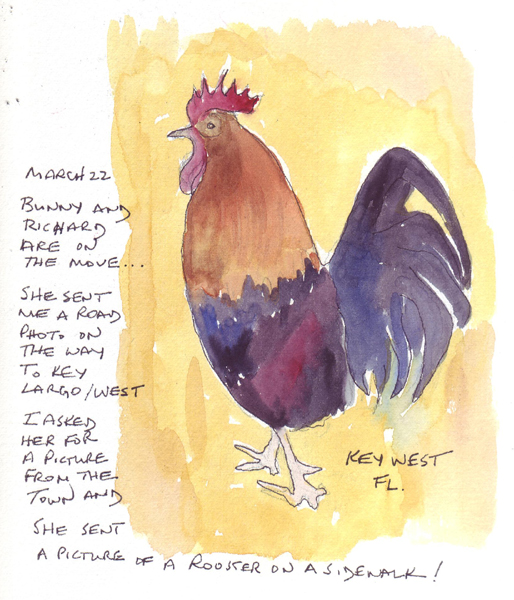 MARCH 22
BUNNY AND
RICHARD
ARE ON
THE MOVE...
SHE SENT
ME A ROAD
PHOTO ON
THE WAY
TO KEY
LARGO/WEST
I ASKED
HER FOR
A PICTURE
FROM THE
TOWN AND
SHE SENT
A PICTURE OF A ROOSTER ON A SIDEWALK!
KEY WEST
FL.